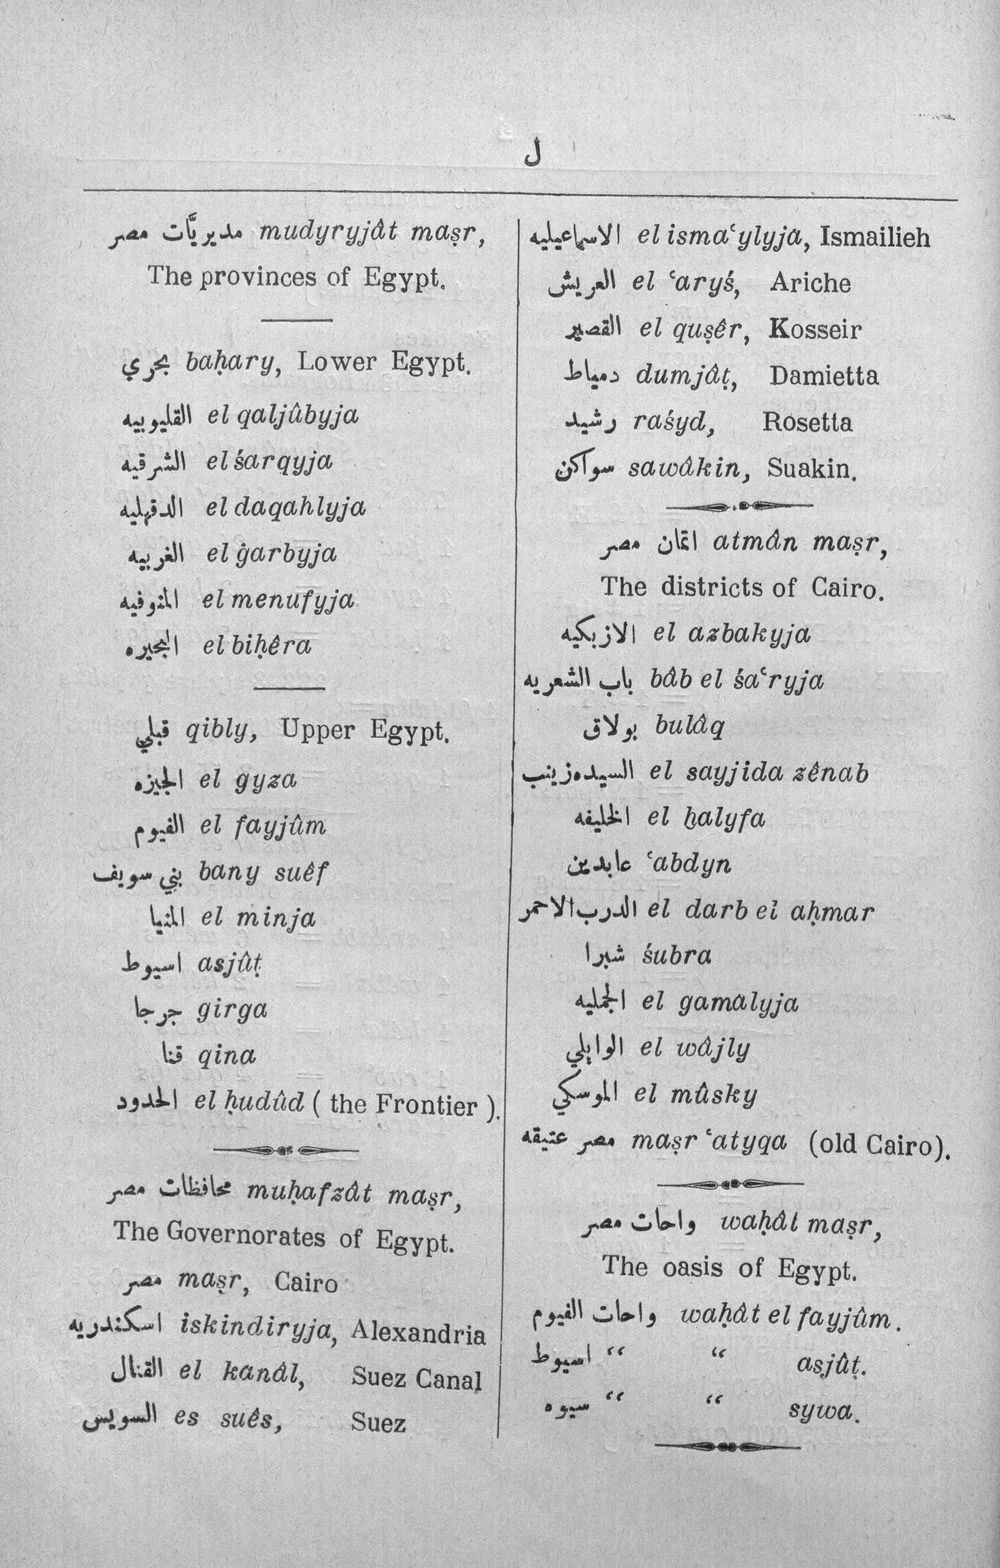 ل
مديريَّات مصر mudyryjât maṣr,
The provinces of Egypt.
بحري baḥary, Lower Egypt.
القليوبيه el qaljûbyja
الشرقيه el śarqyja
الدقهليه el daqahlyja
الغربيه el ġarbyja
المنوفيه el menufyja
البحيره el biḥêra
قبلي qibly, Upper Egypt.
الجيزه el gyza
الفيوم el fayjûm
بني سويف bany suêf
المنيا el minja
اسيوط asjûṭ
جرجا girga
قنا qina
الحدود el ḥudûd ( the Frontier ).
محافظات مصر muḥafzât maṣr,
The Governorates of Egypt.
مصر maṣr, Cairo
اسكندريه iskindiryja, Alexandria
القنال el kanâl, Suez Canal
السويس es suês, Suez
الاسماعيليه el ismaʿylyja, Ismailieh
العريش el ʿaryś, Ariche
القصير el quṣêr, Kosseir
دمياط dumjâṭ, Damietta
رشيد raśyd, Rosetta
سواكن sawâkin, Suakin.
اتمان مصر atmân maṣr,
The districts of Cairo.
الازبكيه el azbakyja
باب الشعريه bâb el śaʿryja
بولاق bulâq
السيده زينب el sayjida zênab
الخليفه el ḫalyfa
عابدين ʿabdyn
الدرب الاحمر el darb el aḥmar
شبرا śubra
الجمليه el gamalyja
الوايلي el wâjly
الموسكي el mûsky
مصر عتيقه maṣr ʿatyqa (old Cairo).
واحات مصر waḥât maṣr,
The oasis of Egypt.
واحات الفيوم waḥât el fayjûm.
“ اسيوط “ asjûṭ.
“ سيوه “ sywa.